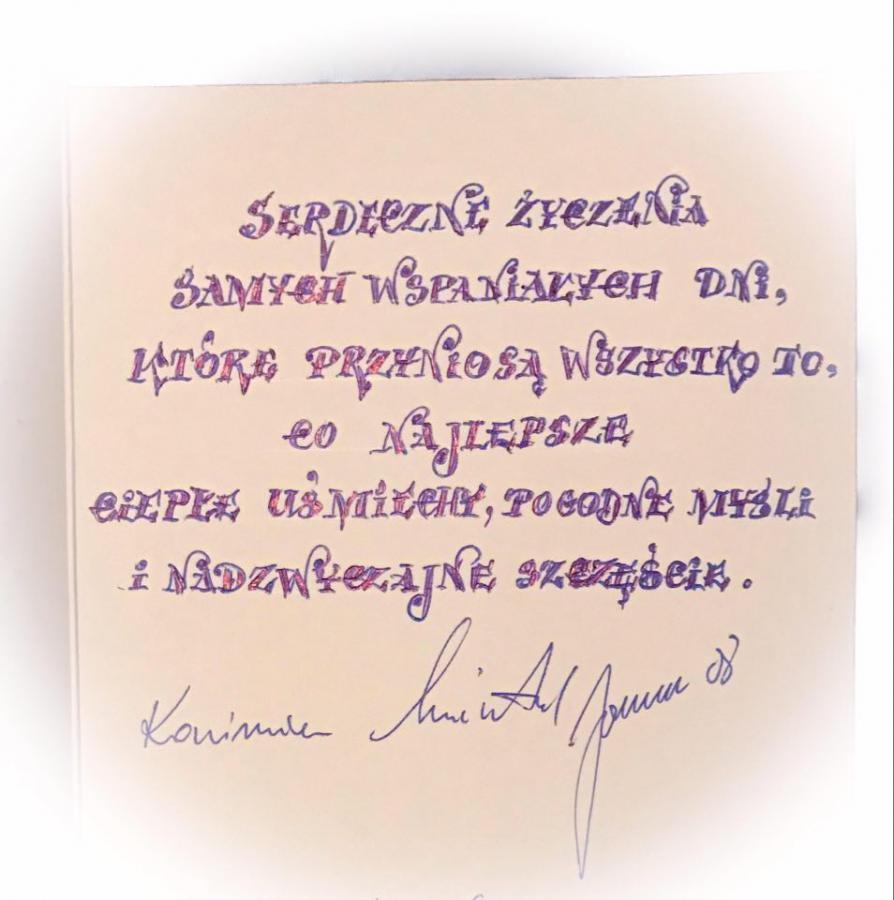 SERDECZNE ŻYCZENIA
SAMYCH WSPANIAŁYCH DNI,
KTÓRE PRZYNIOSĄ WSZYSTKO TO,
CO NAJLEPSZE
CIEPŁE UŚMIECHY, POGODNE MYŚLI
I NADZWYCZAJNE SZCZĘŚCIE.